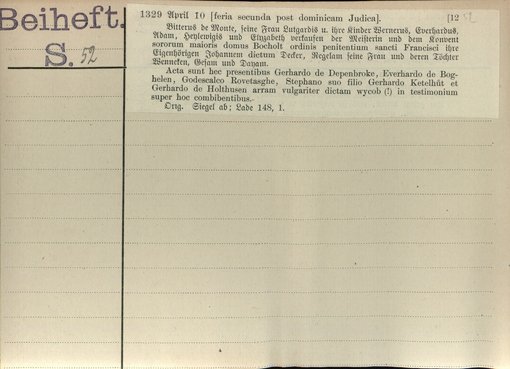 Beiheft.
S. 52
1329 April 10 [feria secunda post dominicam Judica]. [12
Bitterus de Monte, seine Frau Lutgardis u. ihre Kinder Wernerus, Everhardus,
Adam, Heylewigis und Elyzabeth verkaufen der Meisterin und dem Konvent
sororum maioris domus Bocholt ordinis penitentium sancti Francisci ihre
Eigenhörigen Johannem dictum Decker, Regelam seine Frau und deren Töchter
Wemneken, Gesam und Dayam.
Acta sunt hec presentibus Gerhardo de Depenbroke, Everhardo de Bog-
helen, Godescalco Rovetasghe, Stephano suo filio Gerhardo Ketelhût et
Gerhardo de Holthusen arram vulgariter dictam wycob (!) in testimonium
super hoc combibentibus.
Orig. Siegel ab; Lade 148, 1.